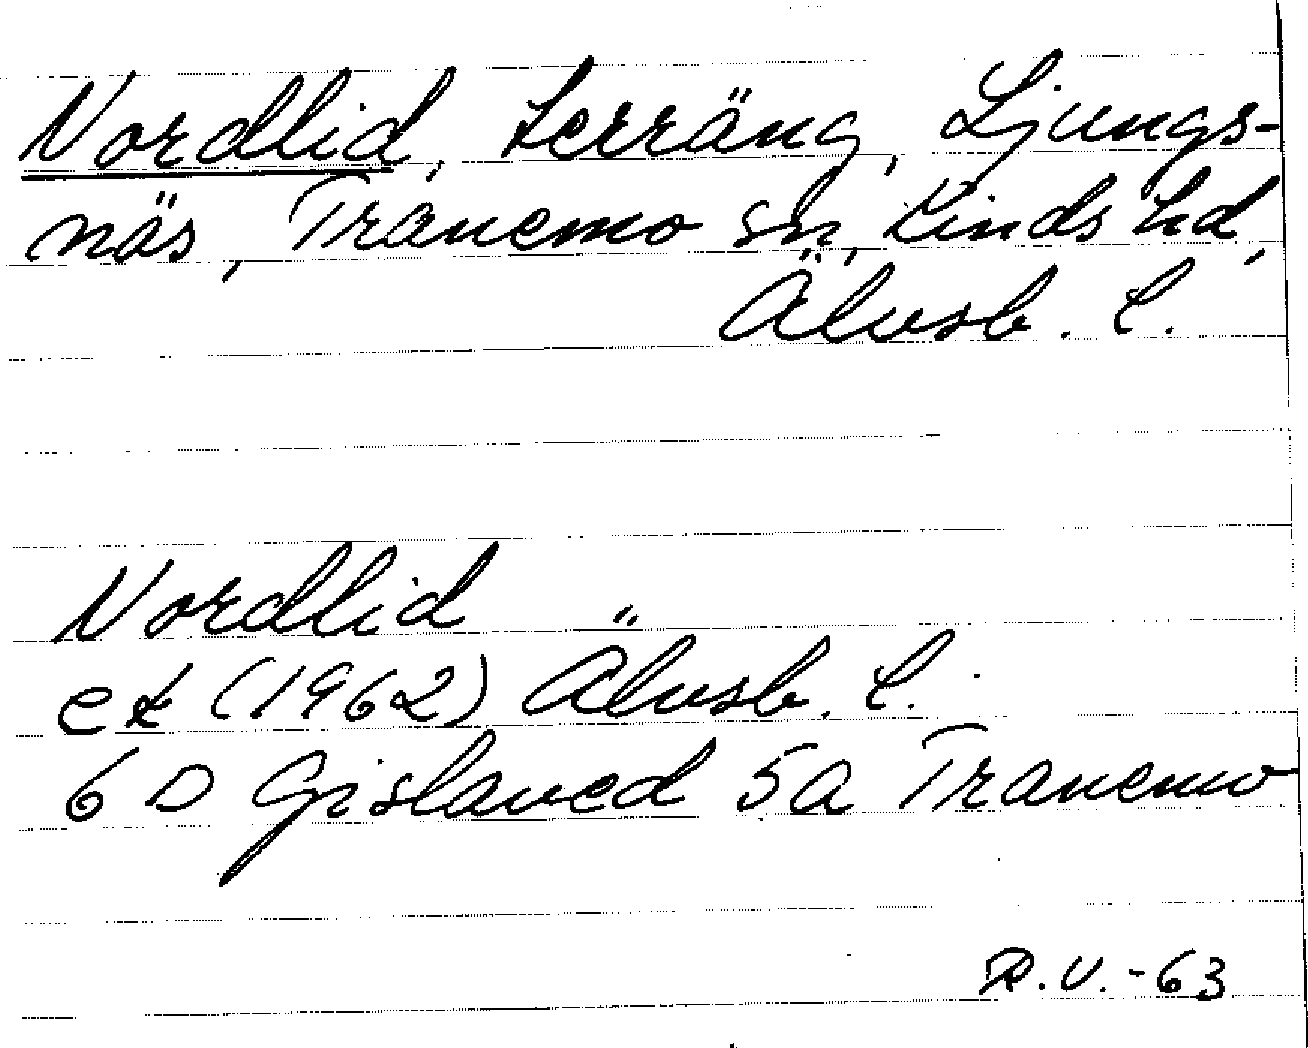 Nordlid, terräng, Ljungs-
näs, Tranemo sn, Kinds hd,
Älvsb. l.
Nordlid
ek (1962) Älvsb. l.
6 D Gislaved 5a Tranemo
R.V. -63